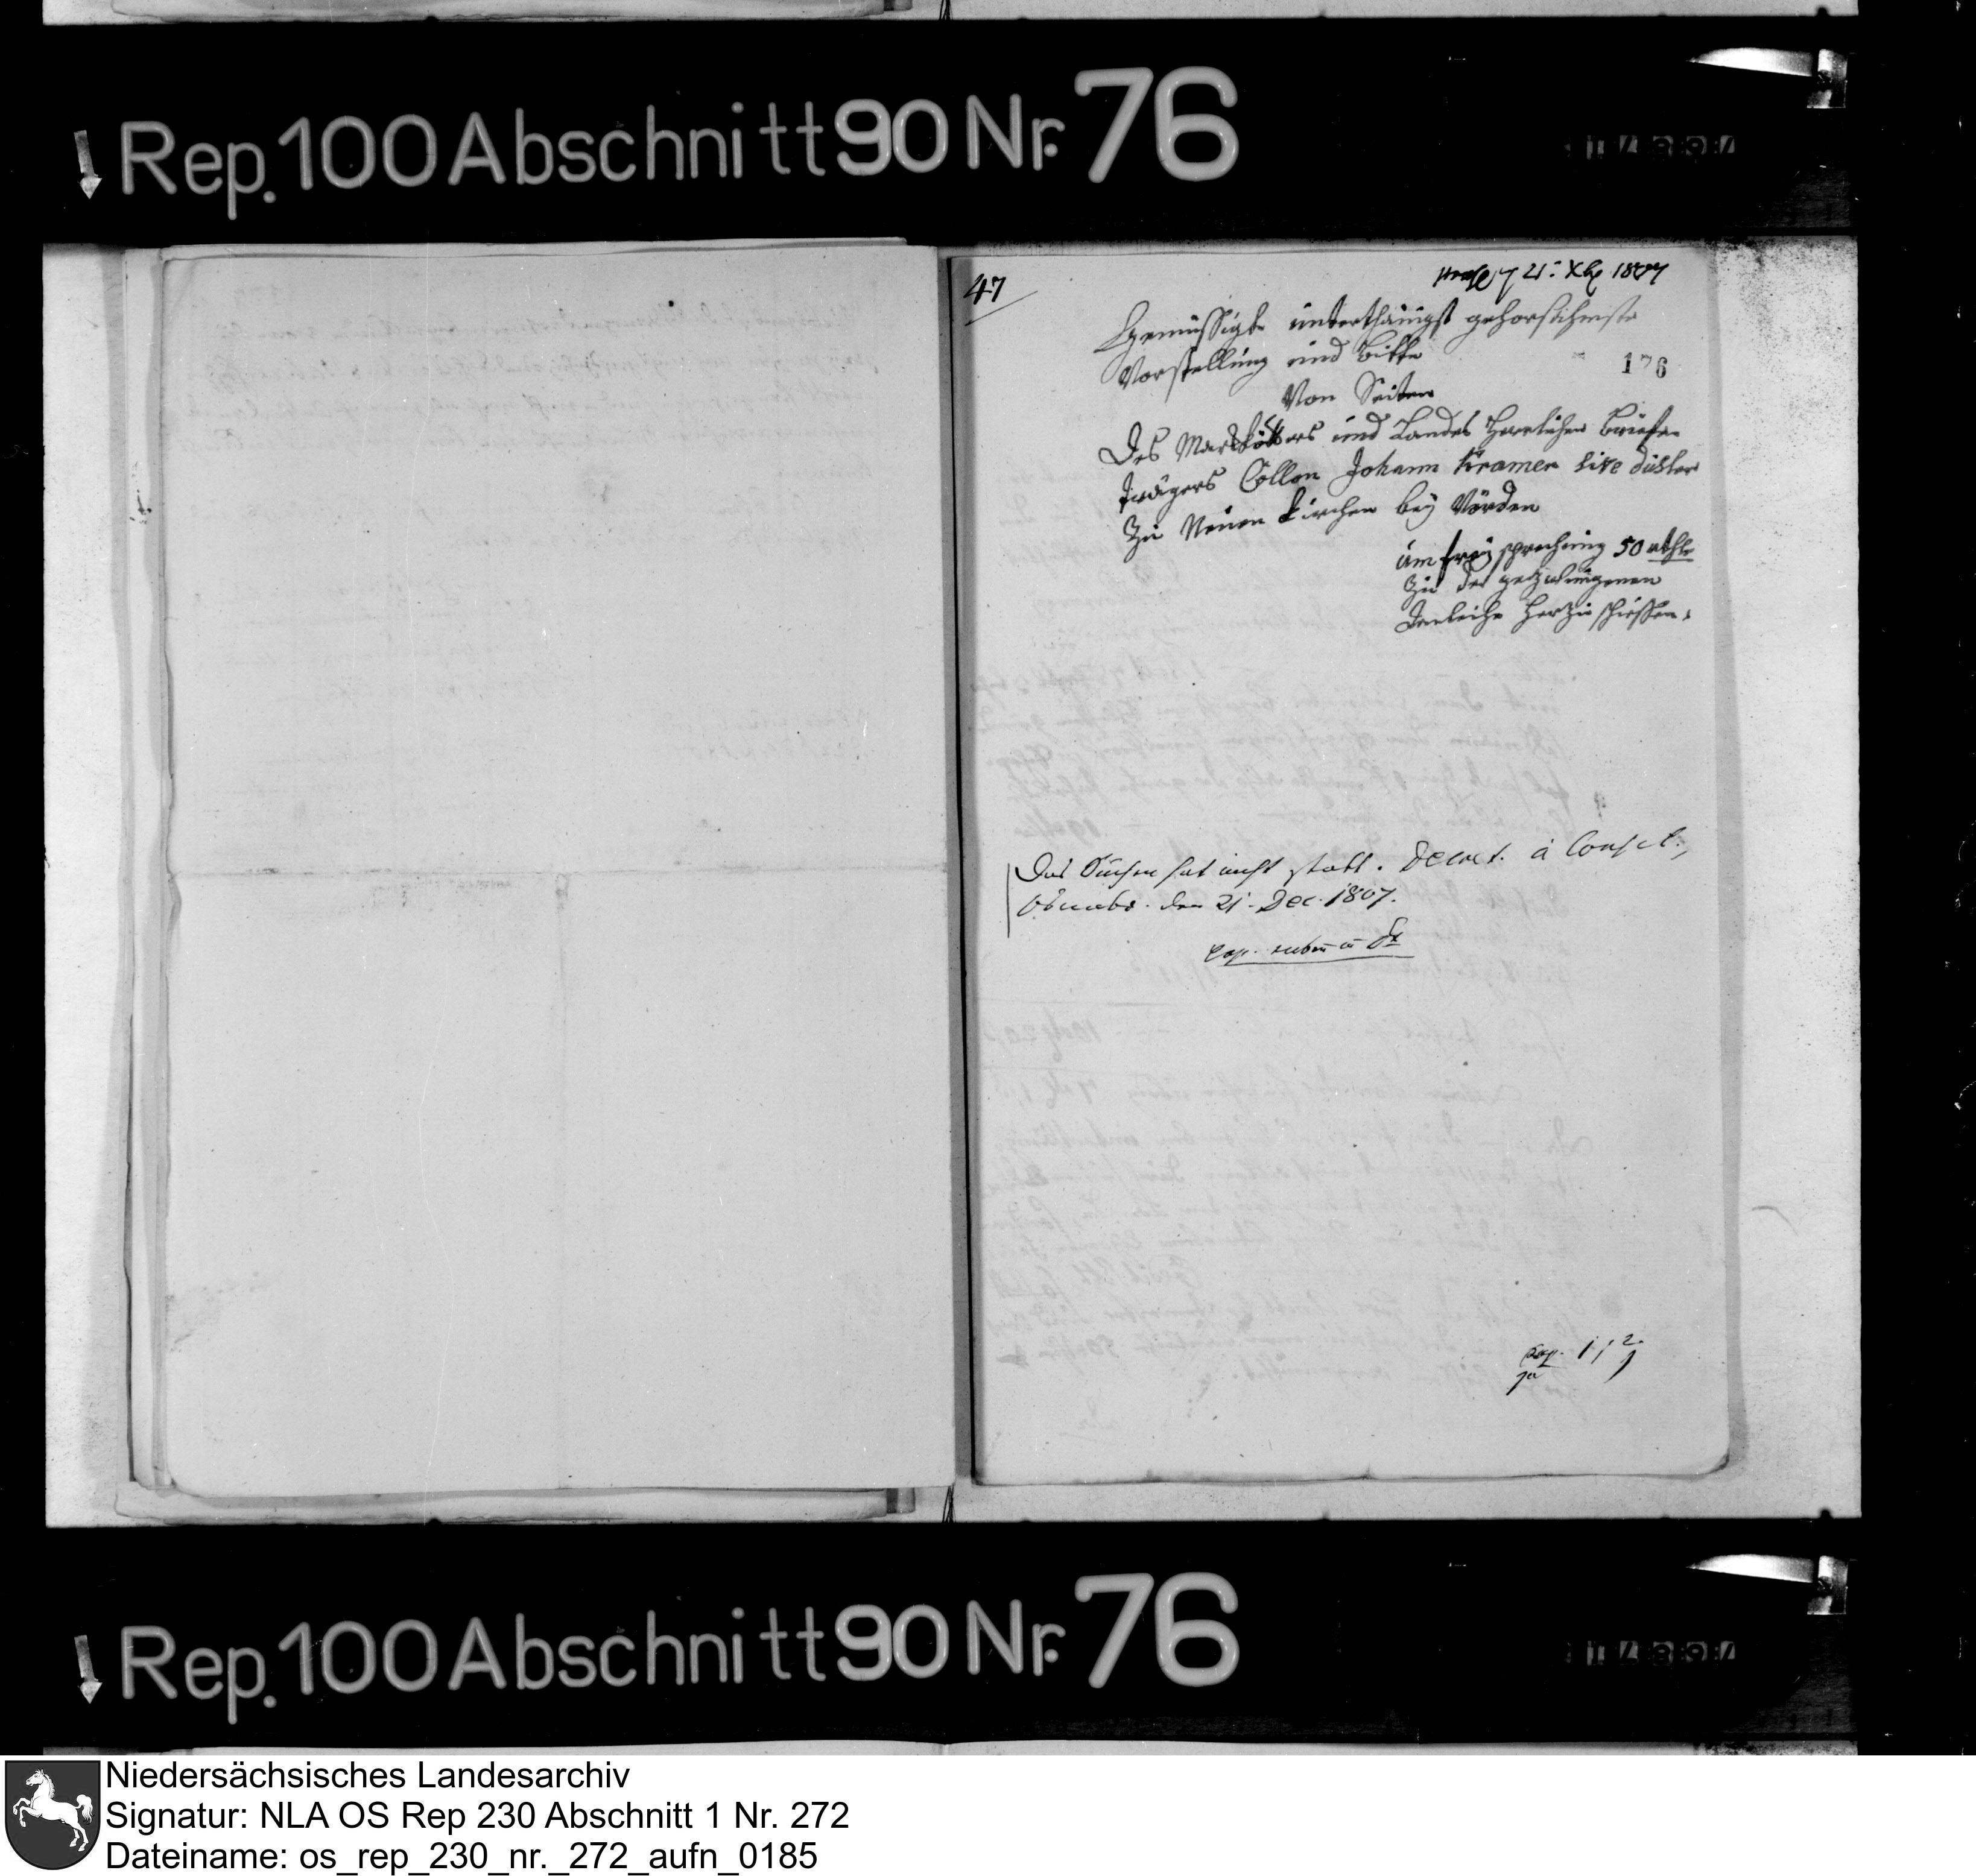 Rep. 100 Abschnitt 90 Nr. 76
47
21. Xbr 1807
Gemüssigte unterthänigst gehorsahmste
Vorstellung und Bitte
176
Von Seiten
Des Markkötters und Landes Herrlichen Briefe
trägers Collon Johann Kramer sive Düster
Zu Neuen Kirchen bey Vörden
um frey sprechung 50 rthlr
Zu der gezwungenen
Anleihe Herzu schießen.
Das Suchen hat nicht statt. Decret. à Consil.
Osnabr. den 21. Dec. 1807.
Rep. 100 Abschnitt 90 Nr. 76
Niedersächsisches Landesarchiv
Signatur: NLA OS Rep 230 Abschnitt 1 Nr. 272
Dateiname: os_rep_230_nr._272_aufn_0185